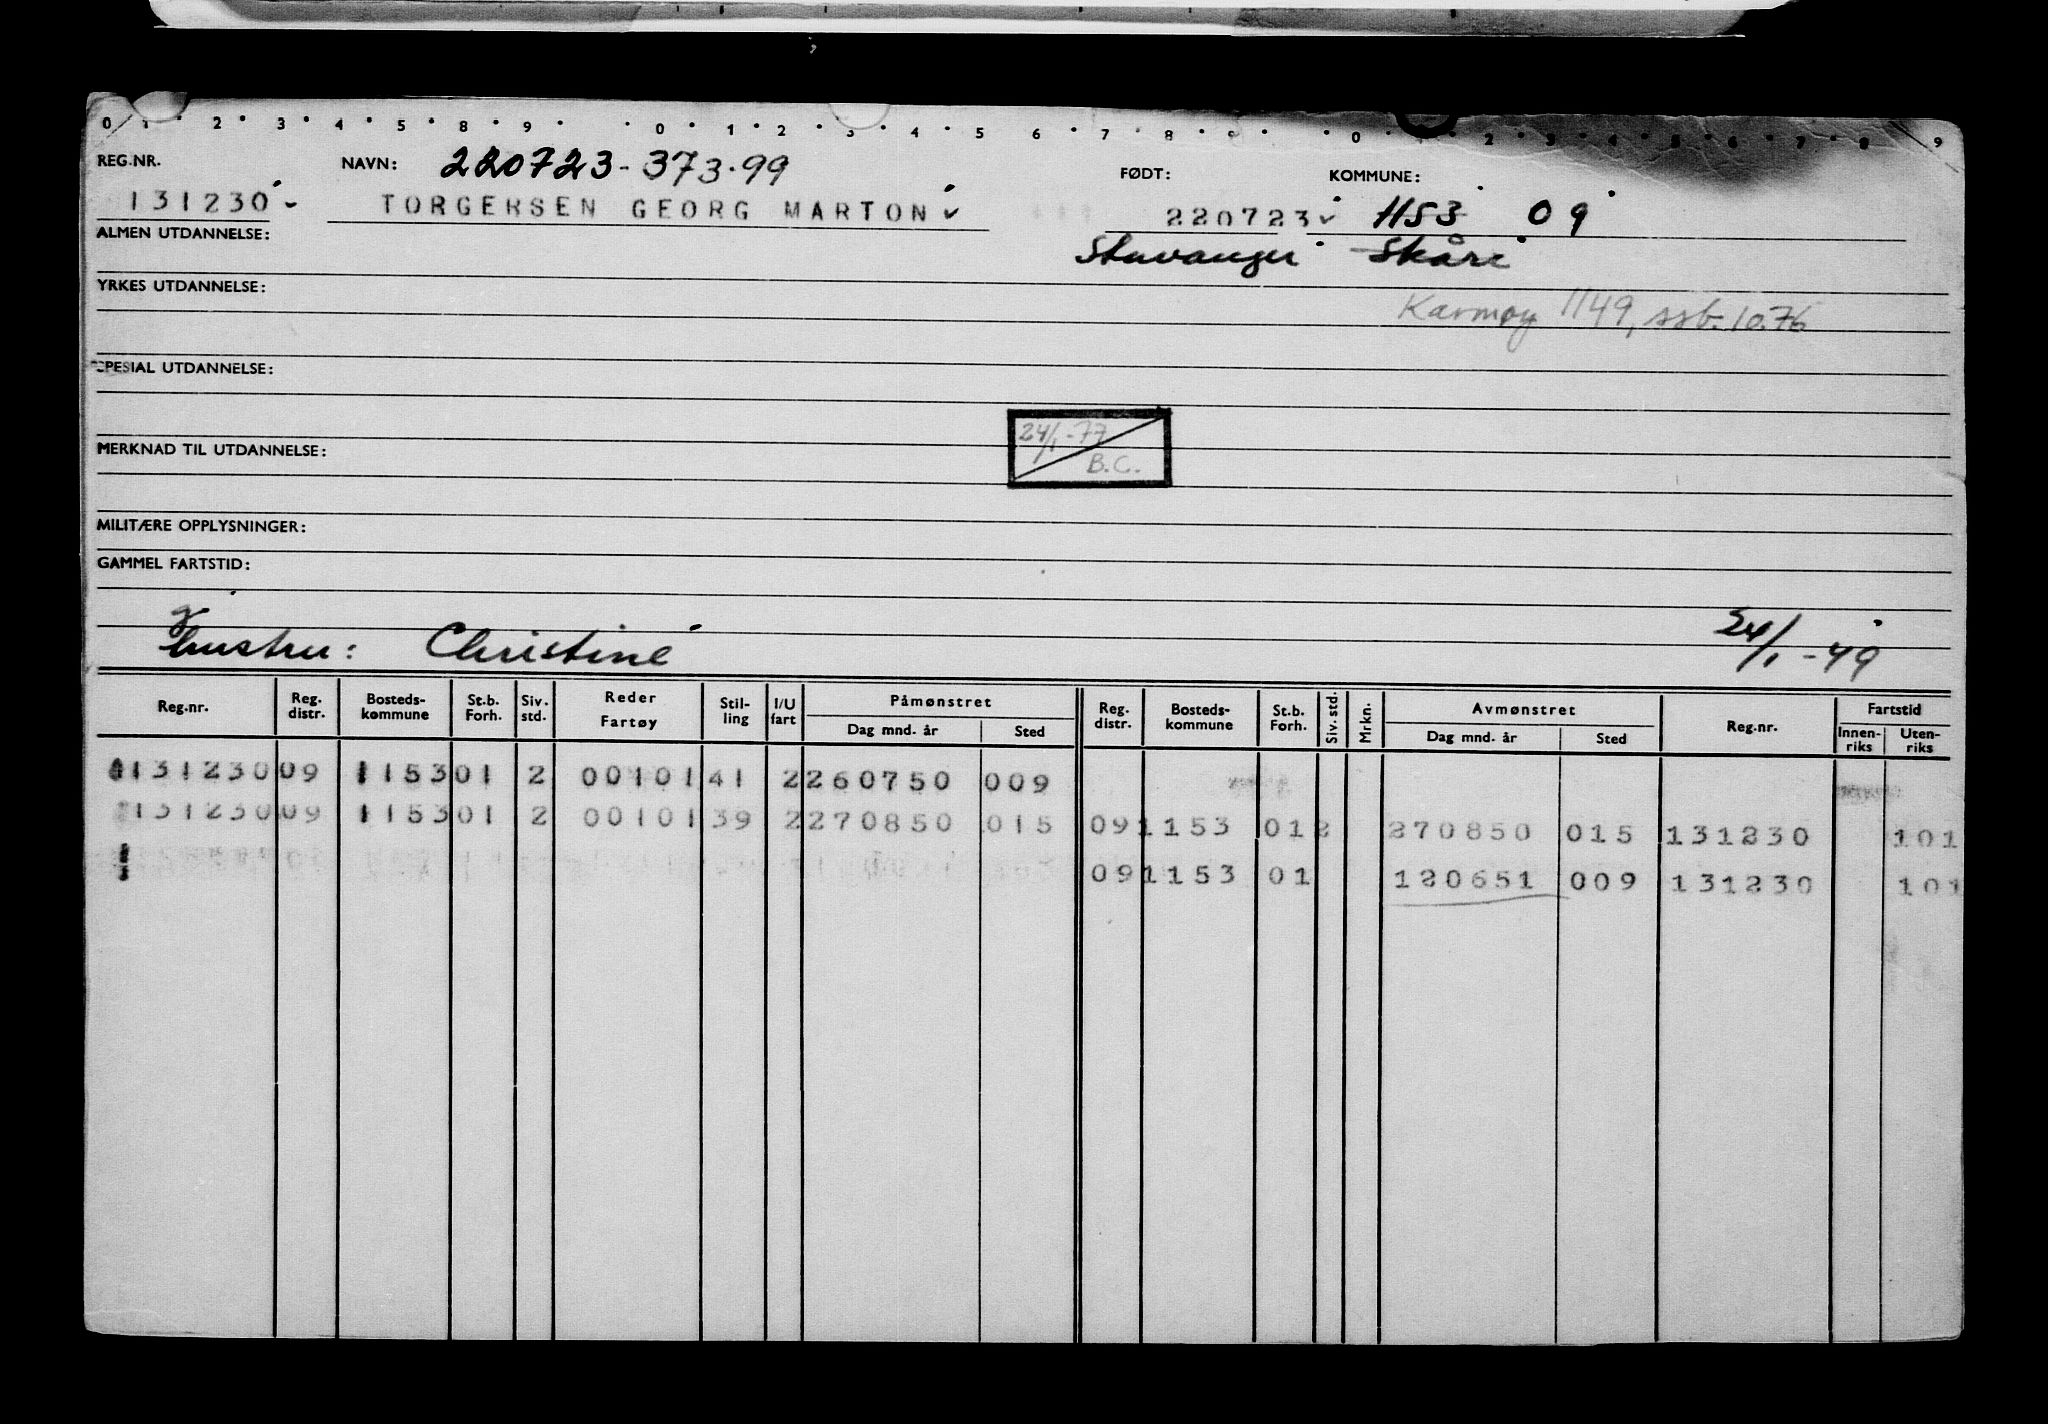 0 1 2 3 4 5 8 9 0 1 2 3 4 5 6 7 8 9 0 2 3 4 5 6 7 8 9
REG.NR. NAVN: 220723-373.99 FØDT: KOMMUNE:
131230 TORGERSEN GEORG MARTON 220723 1153 09
ALMEN UTDANNELSE: Stavanger Skåre
YRKES UTDANNELSE: Karmøy 1149, ssb. 10.76
SPESIAL UTDANNELSE:
24/1-77
MERKNAD TIL UTDANNELSE: B.C.
MILITÆRE OPPLYSNINGER:
GAMMEL FARTSTID:
g
hustru: Christine 24/1-49
Reg.nr. Reg. distr. Bosteds-kommune St.b. Forh. Siv. std. Reder Fartøy Stil-ling I/U fart Påmønstret Dag mnd. år Sted Reg. distr. Bosteds-kommune St.b. Forh. Siv. std. Mrkn. Avmønstret Dag mnd. år Sted Reg.nr. Fartstid Innen-riks Uten-riks
131230 09 1153 01 2 00101 41 2 260750 009
131230 09 1153 01 2 00101 39 2 270850 015 09 1153 01 2 270850 015 131230 101
09 1153 01 120651 009 131230 101